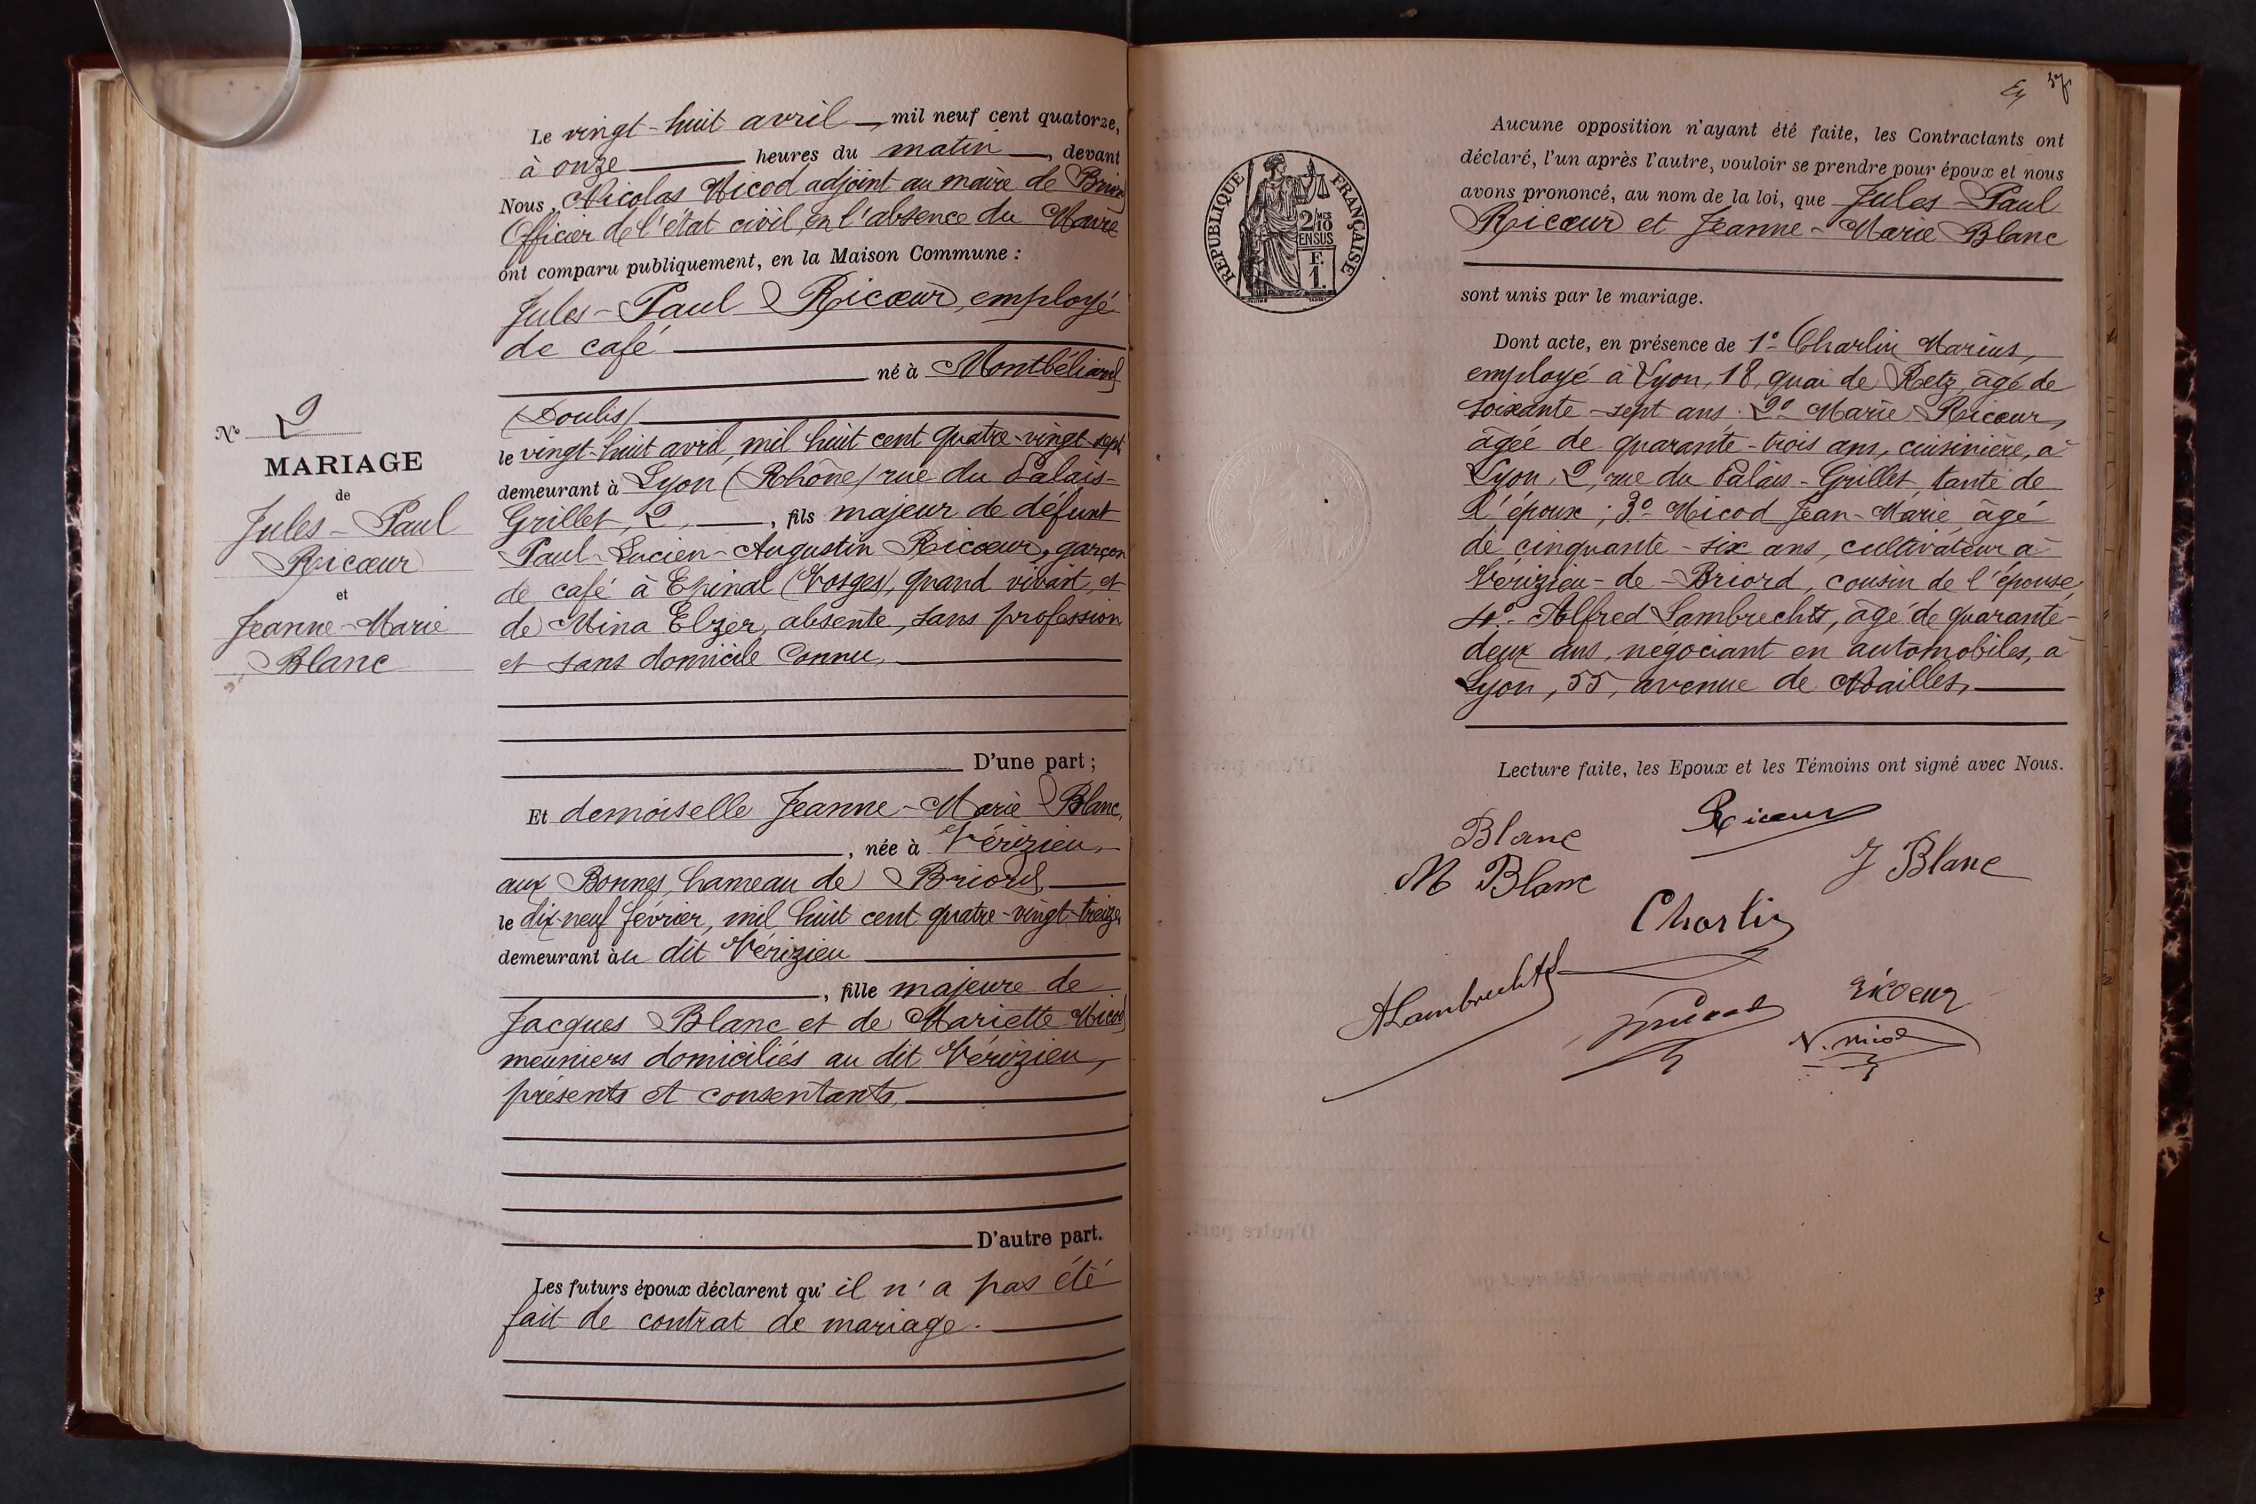 N° 2
MARIAGE
de
Jules-Paul
Ricœur
et
Jeanne-Marie
Blanc
Le vingt-huit avril, mil neuf cent quatorze,
à onze heures du matin, devant
Nous, Nicolas Micod adjoint au maire de Briord
Officier de l'état civil, en l'absence du Maire
ont comparu publiquement, en la Maison Commune :
Jules-Paul Ricœur, employé
de café
né à Montbéliard
(Doubs)
le vingt-huit avril, mil huit cent quatre-vingt-sept
demeurant à Lyon (Rhône) rue du Palais-
Grillet, 2, fils majeur de défunt
Paul-Lucien-Augustin Ricœur, garçon
de café à Epinal (Vosges), quand vivait, et
de Mina Elzer, absente, sans profession
et sans domicile connu,
D'une part ;
Et demoiselle Jeanne-Marie Blanc,
, née à Vérizieu,
aux Bonnes, hameau de Briord
le dix-neuf février, mil huit cent quatre-vingt-treize,
demeurant au dit Vérizieu
, fille majeure de
Jacques Blanc et de Mariette Micod
meuniers domiciliés au dit Vérizieu,
présents et consentants,
D'autre part.
Les futurs époux déclarent qu'il n'a pas été
fait de contrat de mariage.
37
RÉPUBLIQUE FRANÇAISE
2/10
EN SUS
F.
1.
Aucune opposition n'ayant été faite, les Contractants ont
déclaré, l'un après l'autre, vouloir se prendre pour époux et nous
avons prononcé, au nom de la loi, que Jules Paul
Ricœur et Jeanne-Marie Blanc
sont unis par le mariage.
Dont acte, en présence de 1° Charlin Marius,
employé à Lyon, 18, quai de Retz, âgé de
soixante-sept ans. 2° Marie Ricœur,
âgée de quarante-trois ans, cuisinière, à
Lyon, 2, rue du Palais-Grillet, tante de
l'époux ; 3° Micod Jean-Marie, âgé
de cinquante-six ans, cultivateur à
Vérizieu-de-Briord, cousin de l'épouse,
4° Alfred Lambrechts, âgé de quarante-
deux ans, négociant en automobiles, à
Lyon, 55, avenue de Noailles,
Lecture faite, les Epoux et les Témoins ont signé avec Nous.
Ricœur
Blanc
J Blanc
M Blanc
Charlin
ALambrechts
Ricoeur
N. micod